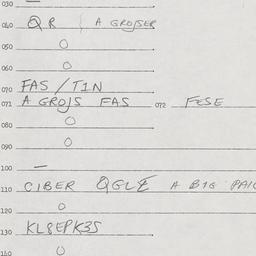 030 —
040 QR ( A GROJSER
050 O
060 O
070 FAS / T1N
071 A GROJS FAS 072 FESE
080 O
090 O
100 —
110 CIBER QGLE A B1G PAIC
120 O
130 KL8EPK3S
140 O